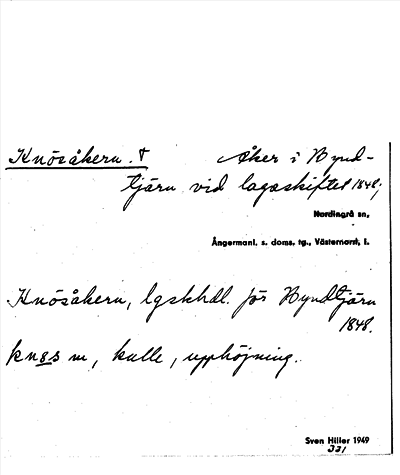 Knösåkern. † Åker i Bynd-
tjärn vid lagaskiftet 1848;
Nordingrå sn,
Ångermanl. s. doms. tg., Västernorrl. l.
Knösåkern, lgskhdl. för Byndtjärn
1848.
knøs m, kulle, upphöjning.
Sven Hiller 1949